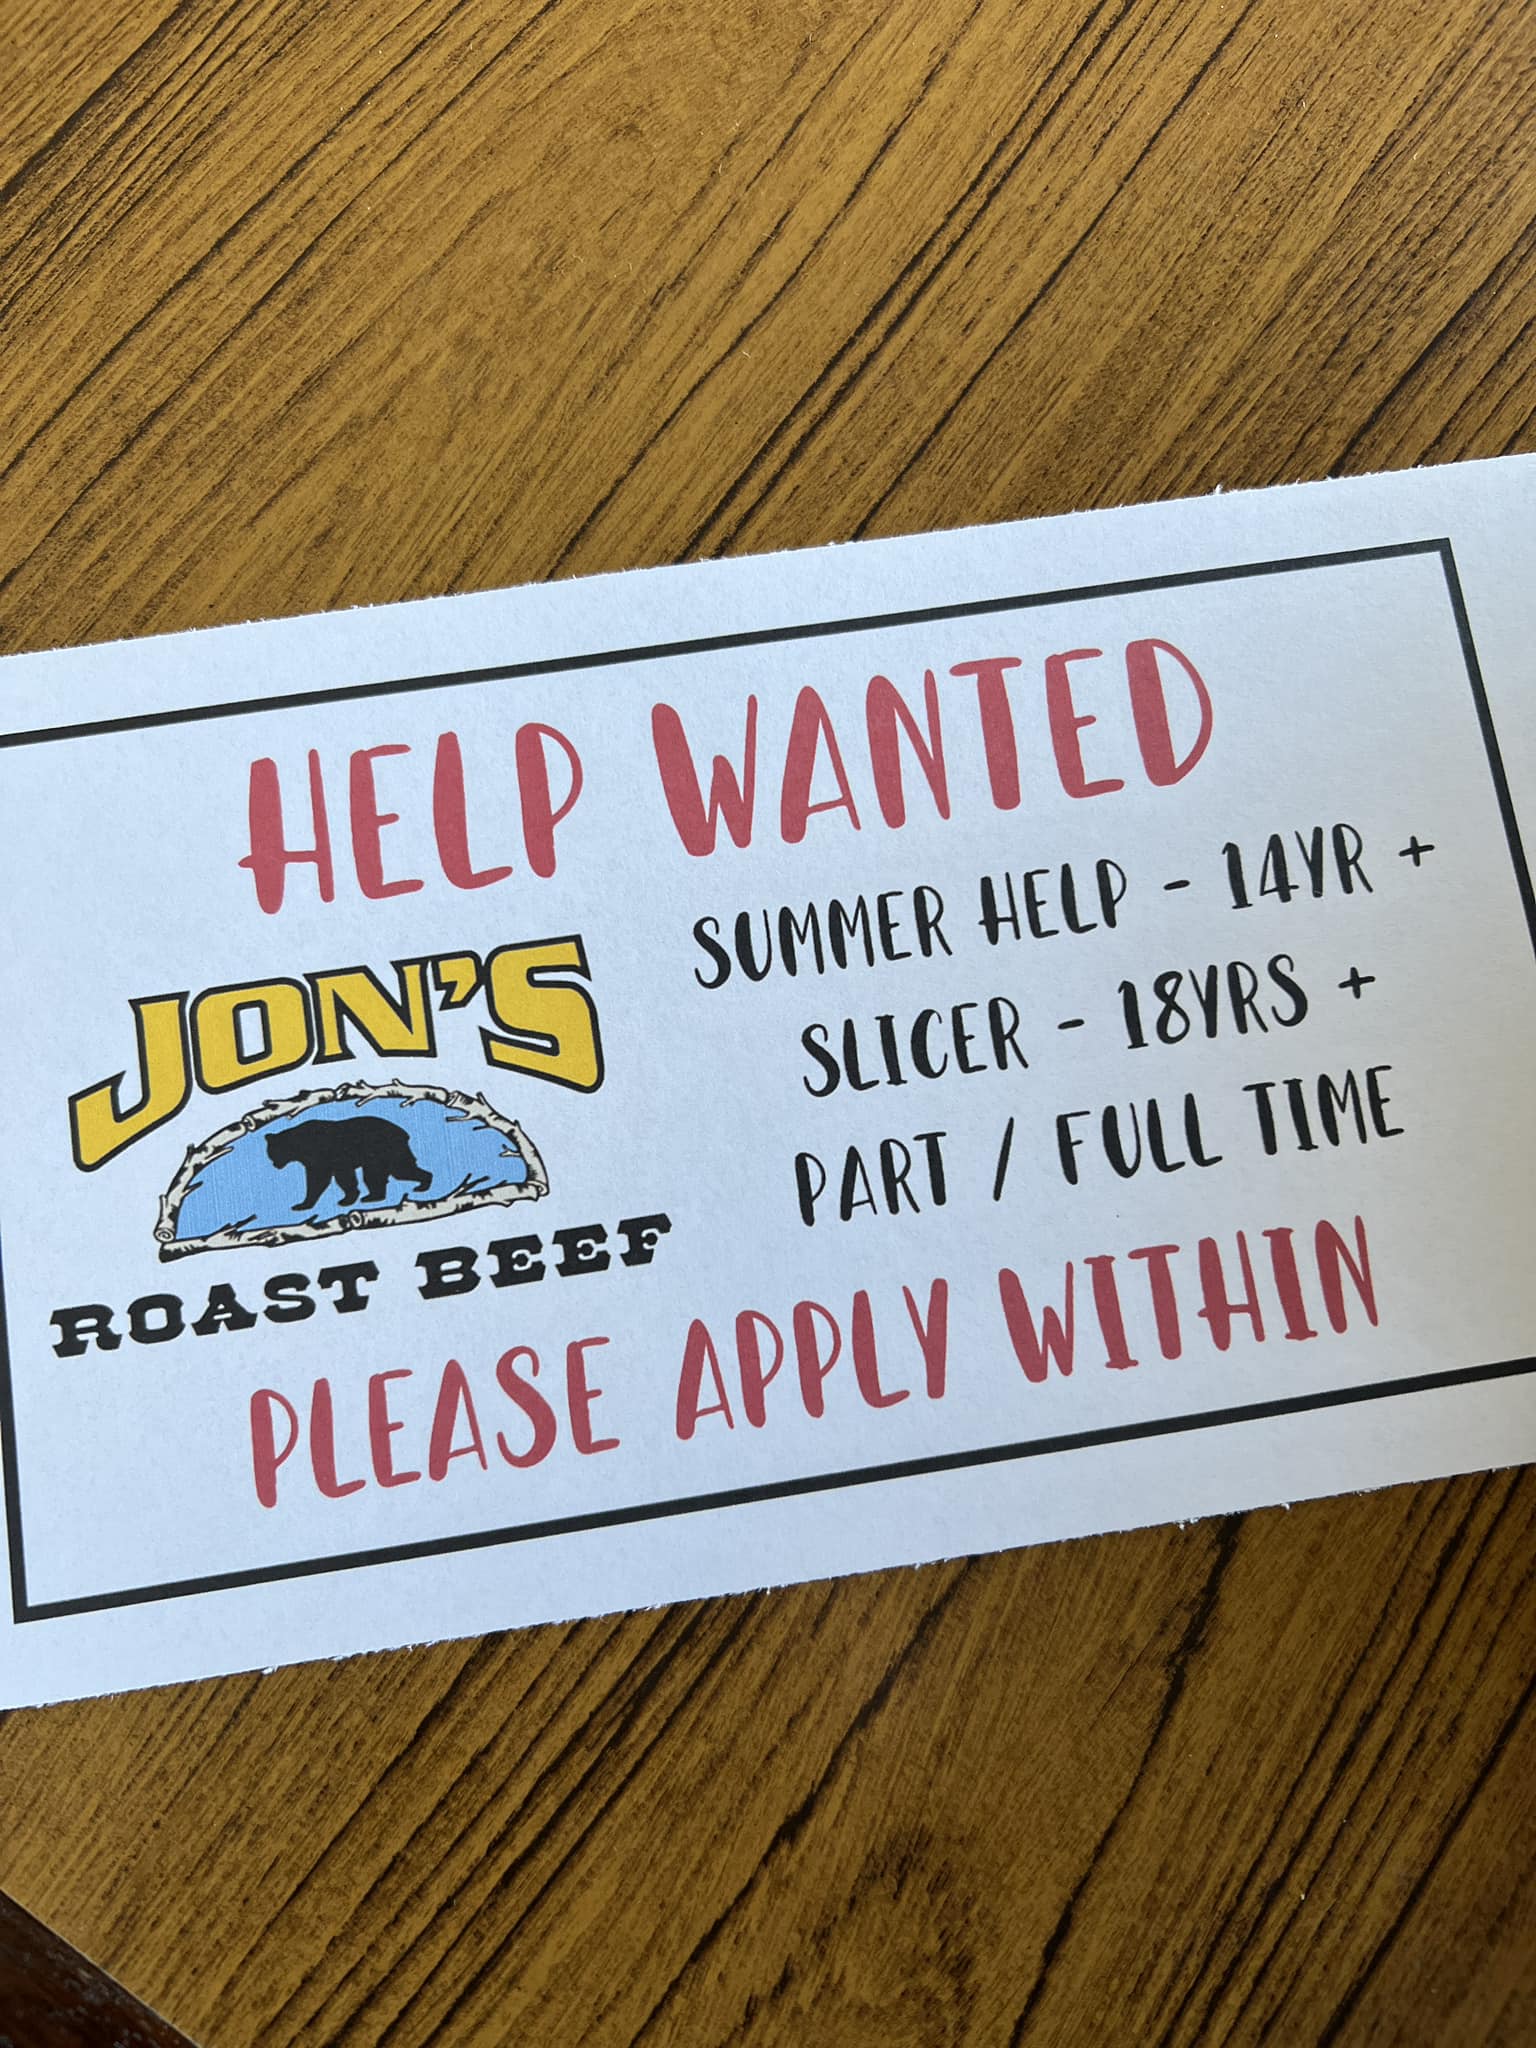 HELP WANTED
JON'S
ROAST BEEF
SUMMER HELP - 14YR +
SLICER - 18YRS +
PART / FULL TIME
PLEASE APPLY WITHIN